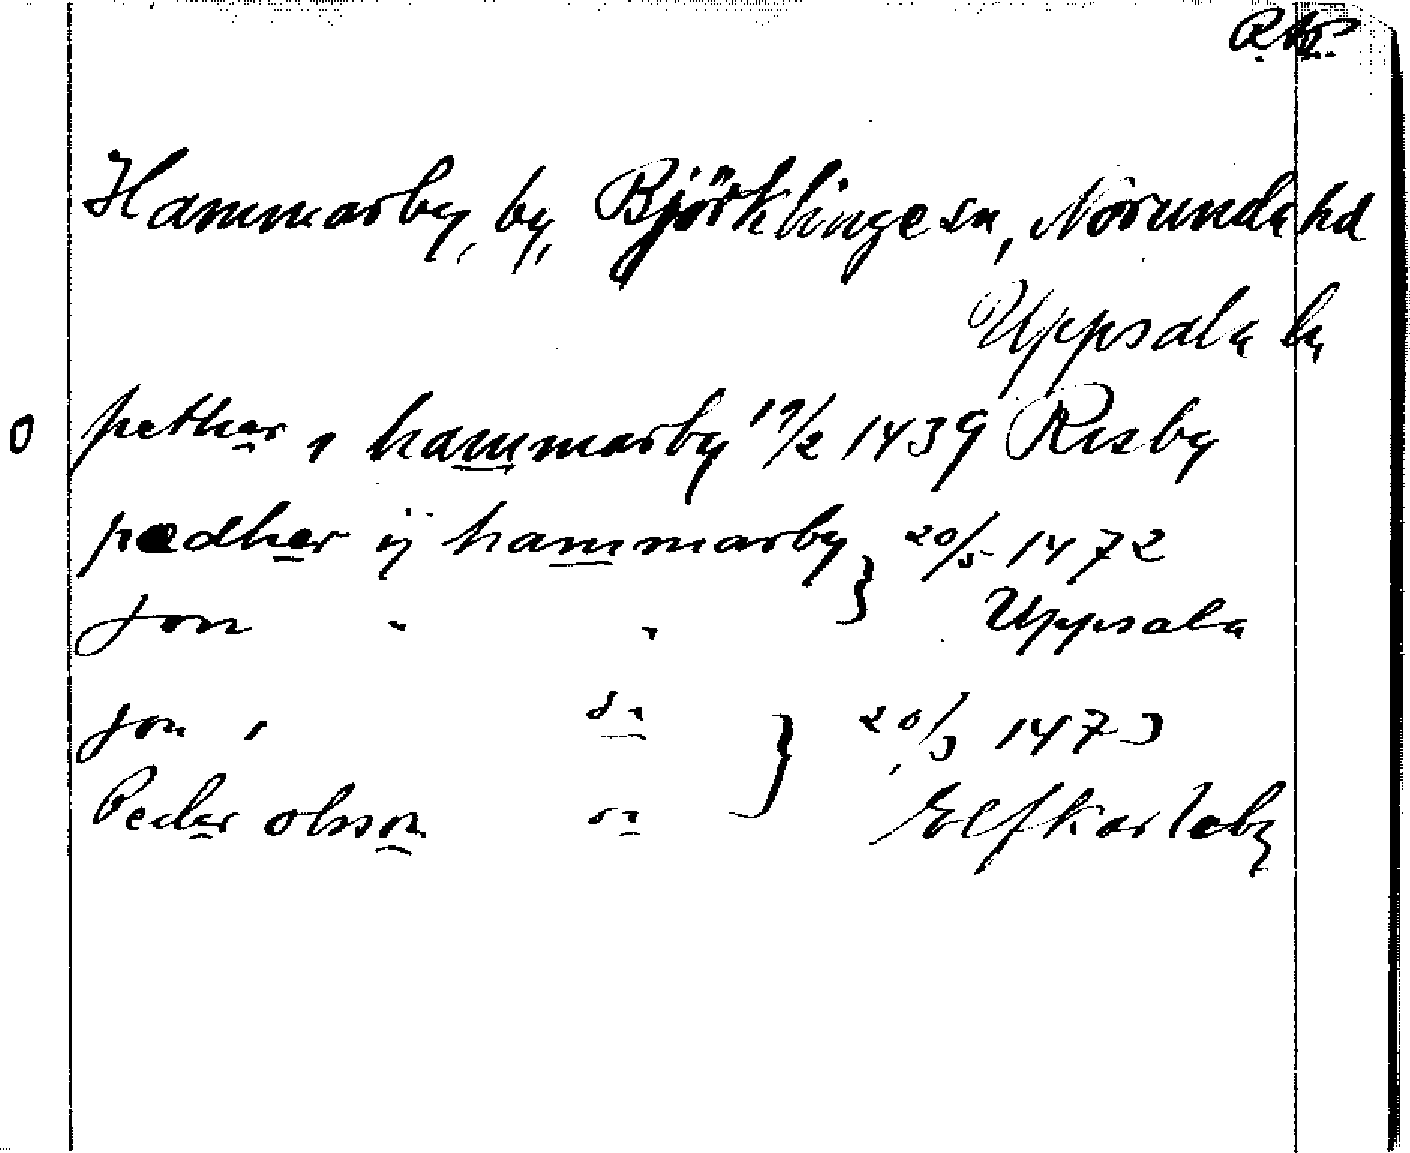 Hammarby, by, Björklinge sn, Norunda hd
Uppsala la
pethar i hammarby 19/2 1439 Risby
pædher ij hammarby } 20/5 1472
Jon " " Uppsala
Jon i } 20/3 1473
Peder olsson Elfkarleby